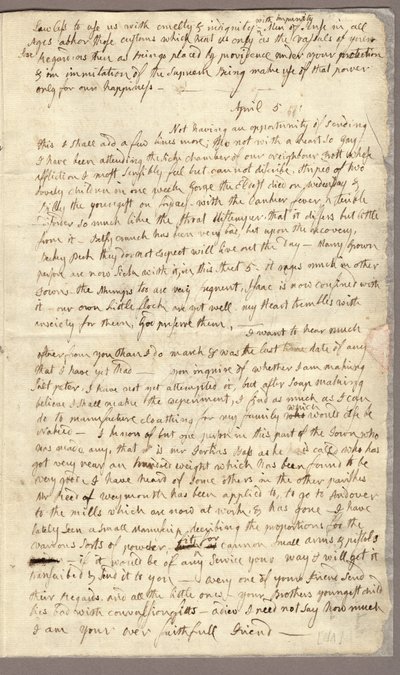 Lawless to use us with cruelty & indignity with impunity. Men of Sense in all
Ages abhor those customs which treat us only as the vassals of your
Sex. Regard us then as Beings placed by providence under your protection
& in immitation of the Supreem Being make use of that power
only for our happiness —
April 5
Not having an opportunity of sending
this I shall add a few lines more; tho not with a heart so gay.
I have been attending the sick chamber of our Neighbour Trot whose
affliction I most sensibly feel but cannot discribe, striped of two
lovely children in one week. Gorge the Eldest died on wedensday &
Billy the youngest on fryday, with the Canker fever, a terible
disorder so much like the throat distemper, that it differs but little
from it. Betsy Cranch has been very bad, but upon the recovery.
Becky Peck they do not expect will live out the day. Many grown
person are now sick with it, in this street 5. It rages much in other
Towns. the Mumps too are very frequent. Isaac is now confined with
it. our own little flock are yet well. my Heart trembles with
anxiety for them. God preserve them.
I want to hear much
oftener from you than I do. march 8 was the last date of any
that I have yet had. you inquire of whether I am making
Salt peter. I have not yet attempted it, but after Soap making
believe I shall make the experiment. I find as much as I can
do to manufacture cloathing for my family which would else be
Naked. I know of but one person in this part of the Town who
has made any, that is mr Tertias Bass as he is calld who has
got very near an hundred weight which has been found to be
very good. I have heard of some others in the other parishes.
mr Reed of weymouth has been applied to, to go to Andover
to the mills which are now at work, & has gone. I have
lately seen a small Manuscrip describing the proportions for the
various sorts of powder, fit for cannon, small arms & pistols
if it would be of any Service your way I will get it
transcribed & send it to you. every one of your Friend send
their Regards, and all the little ones. your Brothers youngest child
lies bad with convulsion fitts. adieu I need not say how much
I am Your ever faithfull Friend —